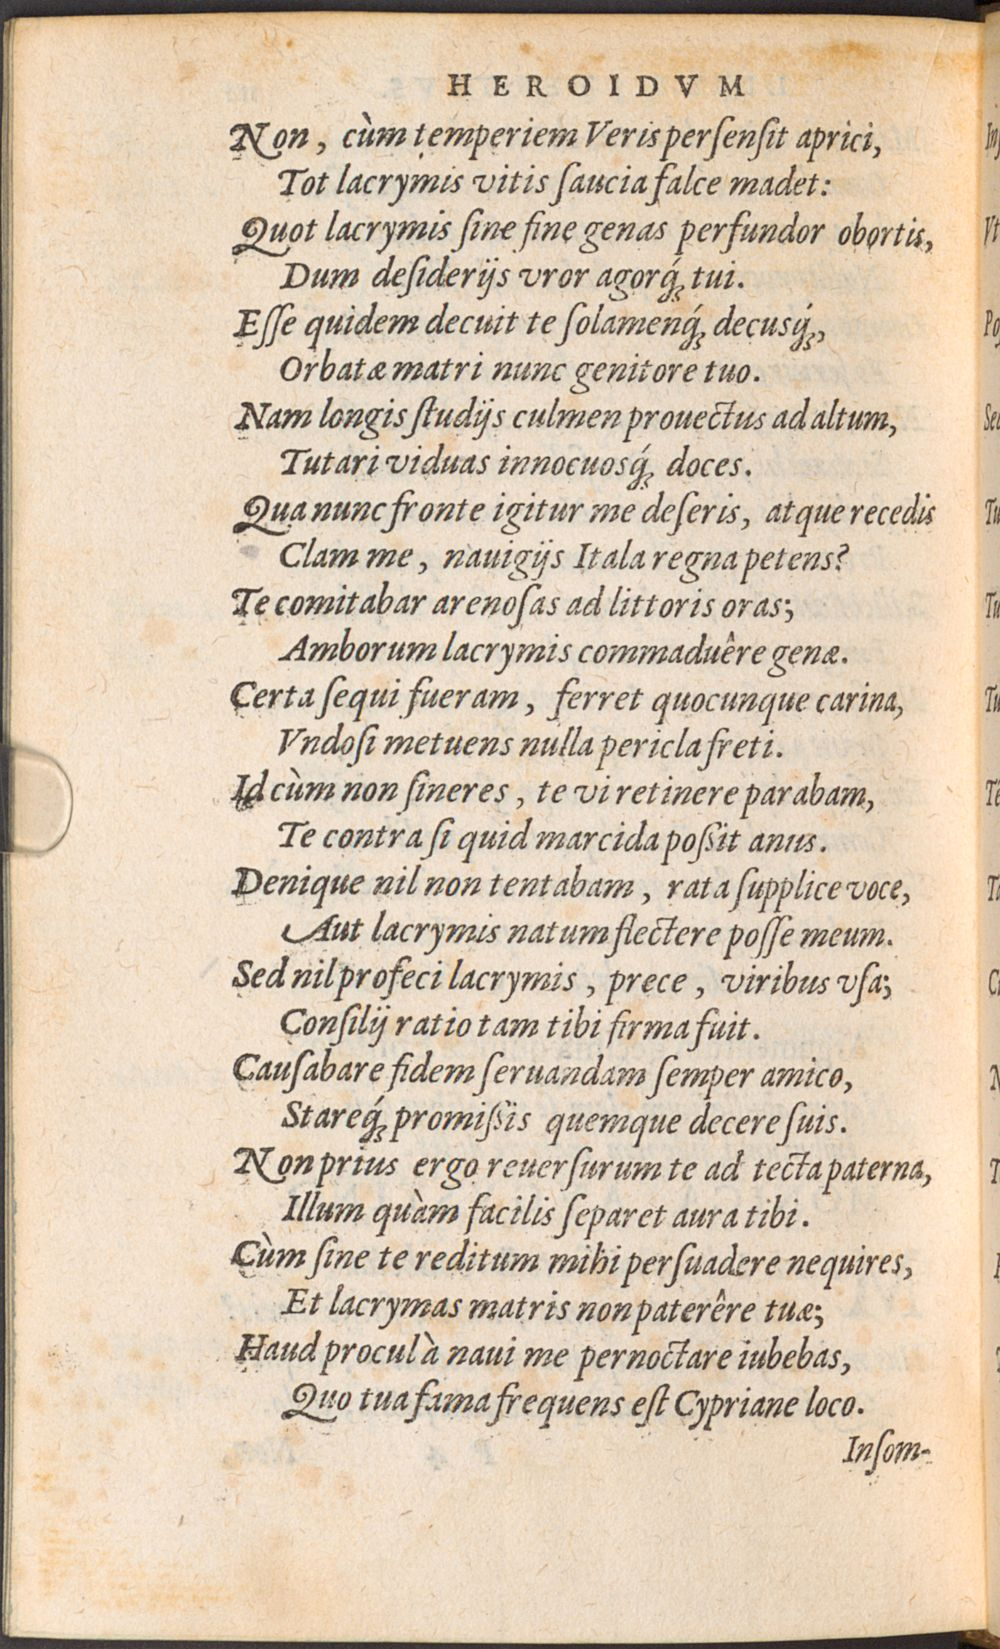 HEROIDVM
Non, cùm temperiem Veris perſenſit aprici,
Tot lacrymis vitis ſaucia falce madet:
Quot lacrymis ſine fine genas perfundor obortis,
Dum deſiderijs vror agorq́; tui.
Eſſe quidem decuit te ſolamenq́; decusq́;,
Orbatæ matri nunc genitore tuo.
Nam longis ſtudijs culmen prouectus ad altum,
Tutari viduas innocuosq́; doces.
Qua nunc fronte igitur me deſeris, atque recedis
Clam me, nauigijs Itala regna petens?
Te comitabar arenoſas ad littoris oras;
Amborum lacrymis commaduêre genæ.
Certa ſequi fueram, ferret quocunque carina,
Vndoſi metuens nulla pericla freti.
Id cùm non ſineres, te vi retinere parabam,
Te contra ſi quid marcida poßit anus.
Denique nil non tentabam, rata ſupplice voce,
Aut lacrymis natum flectere poſſe meum.
Sed nil profeci lacrymis, prece, viribus vſa;
Conſilij ratio tam tibi firma fuit.
Cauſabare fidem ſeruandam ſemper amico,
Stareq́; promißis quemque decere ſuis.
Non prius ergo reuerſurum te ad tecta paterna,
Illum quàm facilis ſeparet aura tibi.
Cùm ſine te reditum mihi perſuadere nequires,
Et lacrymas matris non paterêre tuæ;
Haud procul à naui me pernoctare iubebas,
Quo tua fama frequens eſt Cypriane loco.
Inſom-